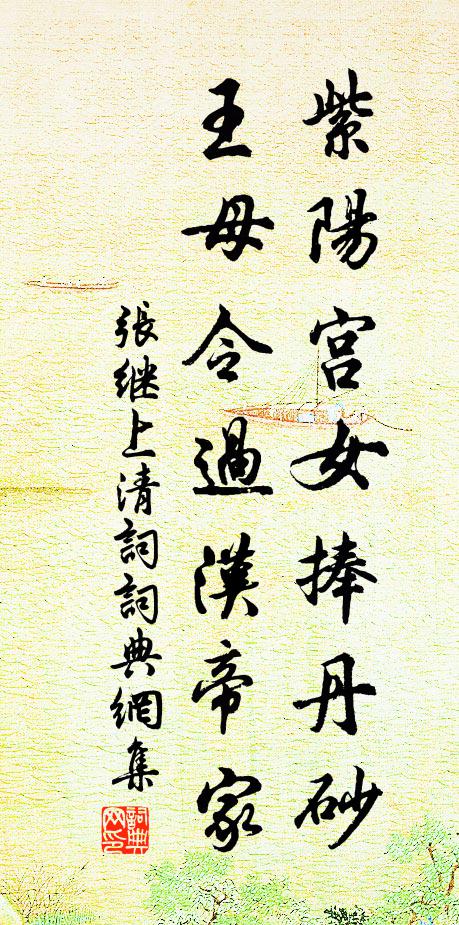 紫陽宮女捧丹砂
王母令過漢帝家
張继上清詞詞典網集
詞典網印